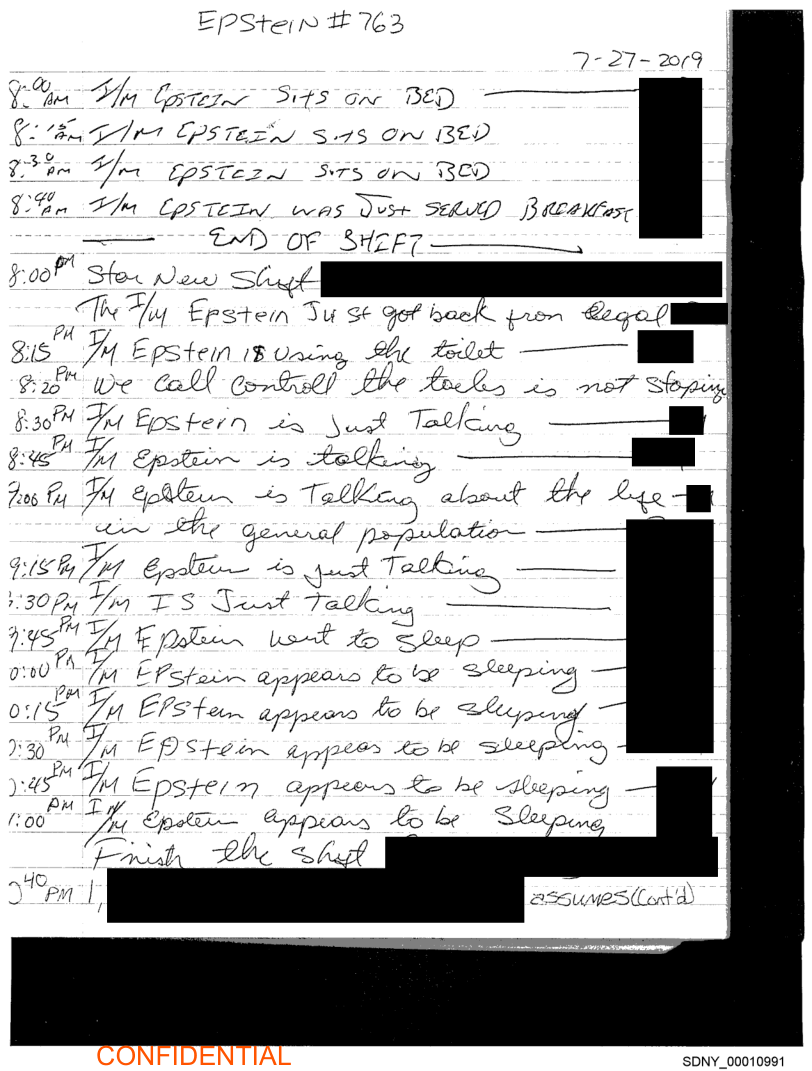 EPSteiN # 763
7-27-2019
8:00 AM I/M EPSTEIN SitS ON BED
8:15 AM I/M EPSTEIN SitS ON BED
8:30 AM I/M EPSTEIN SitS ON BED
8:40 AM I/M EPSTEIN WAS JuSt SERVED BREAKFAST
END OF SHIFT
8:00 PM Star New Shift
The I/M Epstein Just got back from legal
8:15 PM I/M EPStein is using the toilet
8:20 PM We call controll the is not stoping
8:30 PM I/M EPStein is just Talking
8:45 PM I/M Epstein is talking
9:00 PM I/M Epstein is Talking about the life
in the general population
9:15 PM I/M Epstein is just Talking
:30 PM I/M IS Just Talking
9:45 PM I/M EPstein went to sleep
0:00 PM I/M EPStein appears to be sleeping
0:15 PM I/M EPStein appears to be sleeping
0:30 PM I/M EPStein appeas to be sleeping
0:45 PM I/M Epstein appears to be sleeping
1:00 PM I/M Epstein appears to be Sleeping
Finish the Shift
40 PM I,
assumes (Cont'd)
CONFIDENTIAL
SDNY_00010991